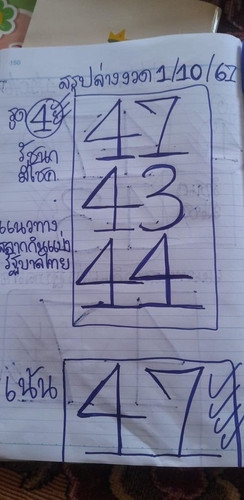 สรุปล่างงวด 1/10/67
ชุด 4
47
รัฐนก
มีโชค
43
แนวทาง
สลากกินแบ่ง
รัฐบาลไทย
44
เน้น 47